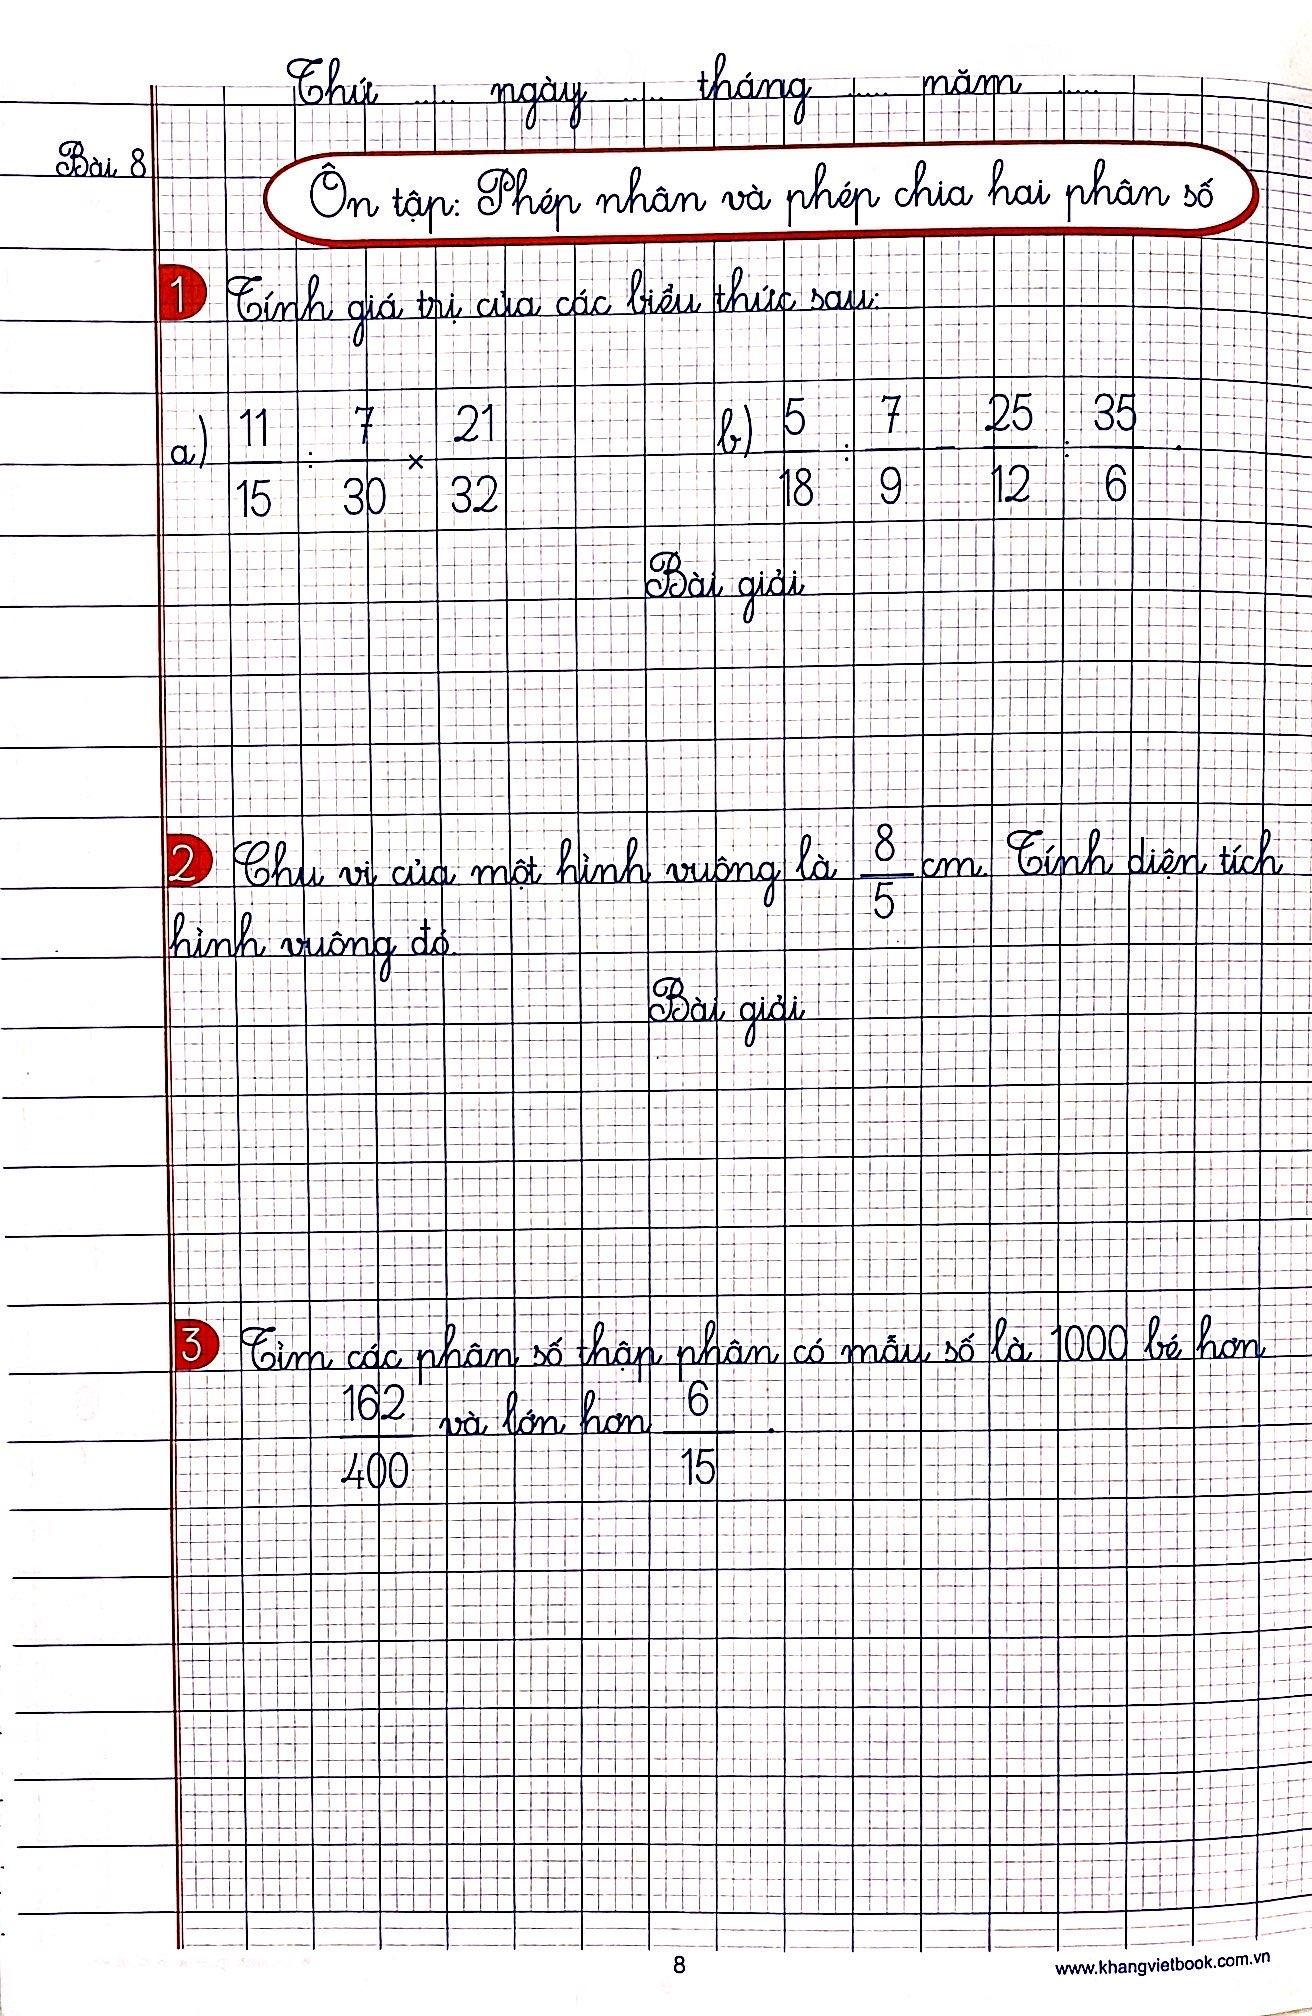 Thứ ..... ngày ..... tháng ..... năm .....
Bài 8
Ôn tập: Phép nhân và phép chia hai phân số
1 Tính giá trị của các biểu thức sau:
a) 11/15 : 7/30 × 21/32 b) 5/18 : 7/9 - 25/12 : 35/6 .
Bài giải
2 Chu vi của một hình vuông là 8/5 cm. Tính diện tích
hình vuông đó.
Bài giải
3 Tìm các phân số thập phân có mẫu số là 1000 bé hơn
162/400 và lớn hơn 6/15 .
8
www.khangvietbook.com.vn